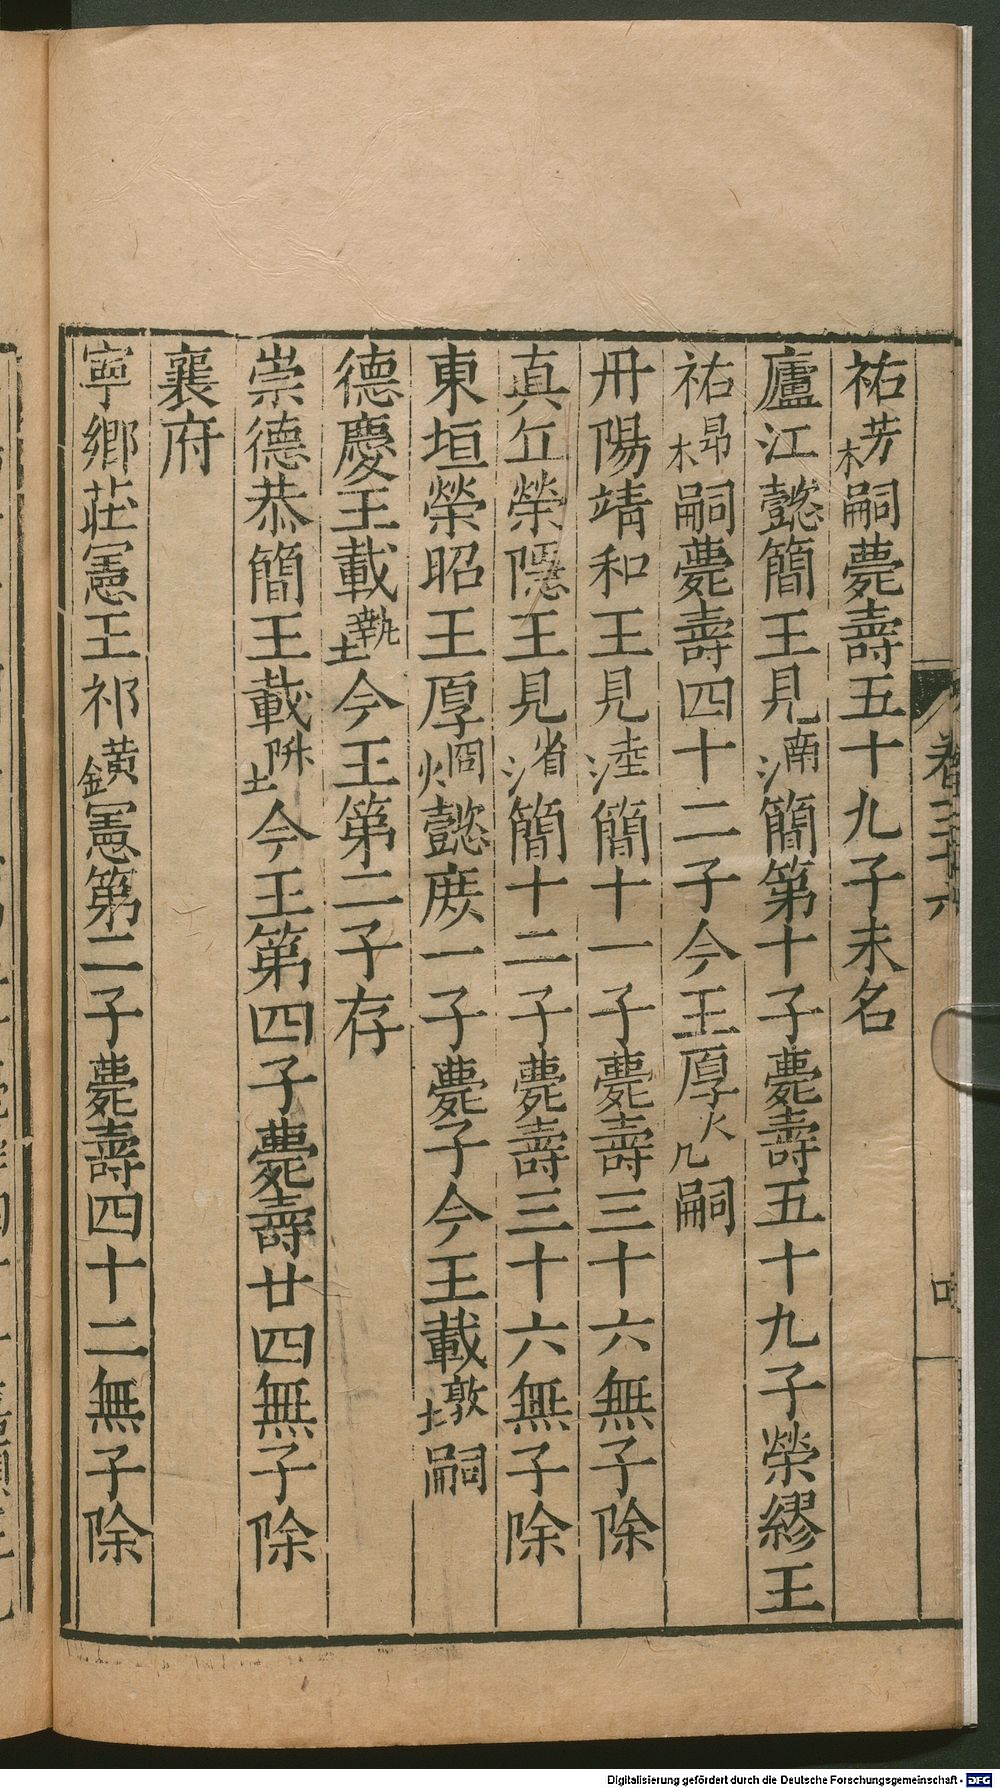 卷三十六
祐芳木嗣薨壽五十九子未名
廬江懿簡王見湳簡第十子薨壽五十九子榮繆王
祐昂木嗣薨壽四十二子今王厚火几嗣
丹陽靖和王見淕簡十一子薨壽三十六無子除
真丘榮隱王見渻簡十二子薨壽三十六無子除
東垣榮昭王厚炯懿庶一子薨子今王載墩嗣
德慶王載埶土今王第二子存
崇德恭簡王載阩土今王第四子薨壽廿四無子除
襄府
寧鄉莊憲王祁黃金憲第二子薨壽四十二無子除
Digitalisierung gefördert durch die Deutsche Forschungsgemeinschaft - DFG